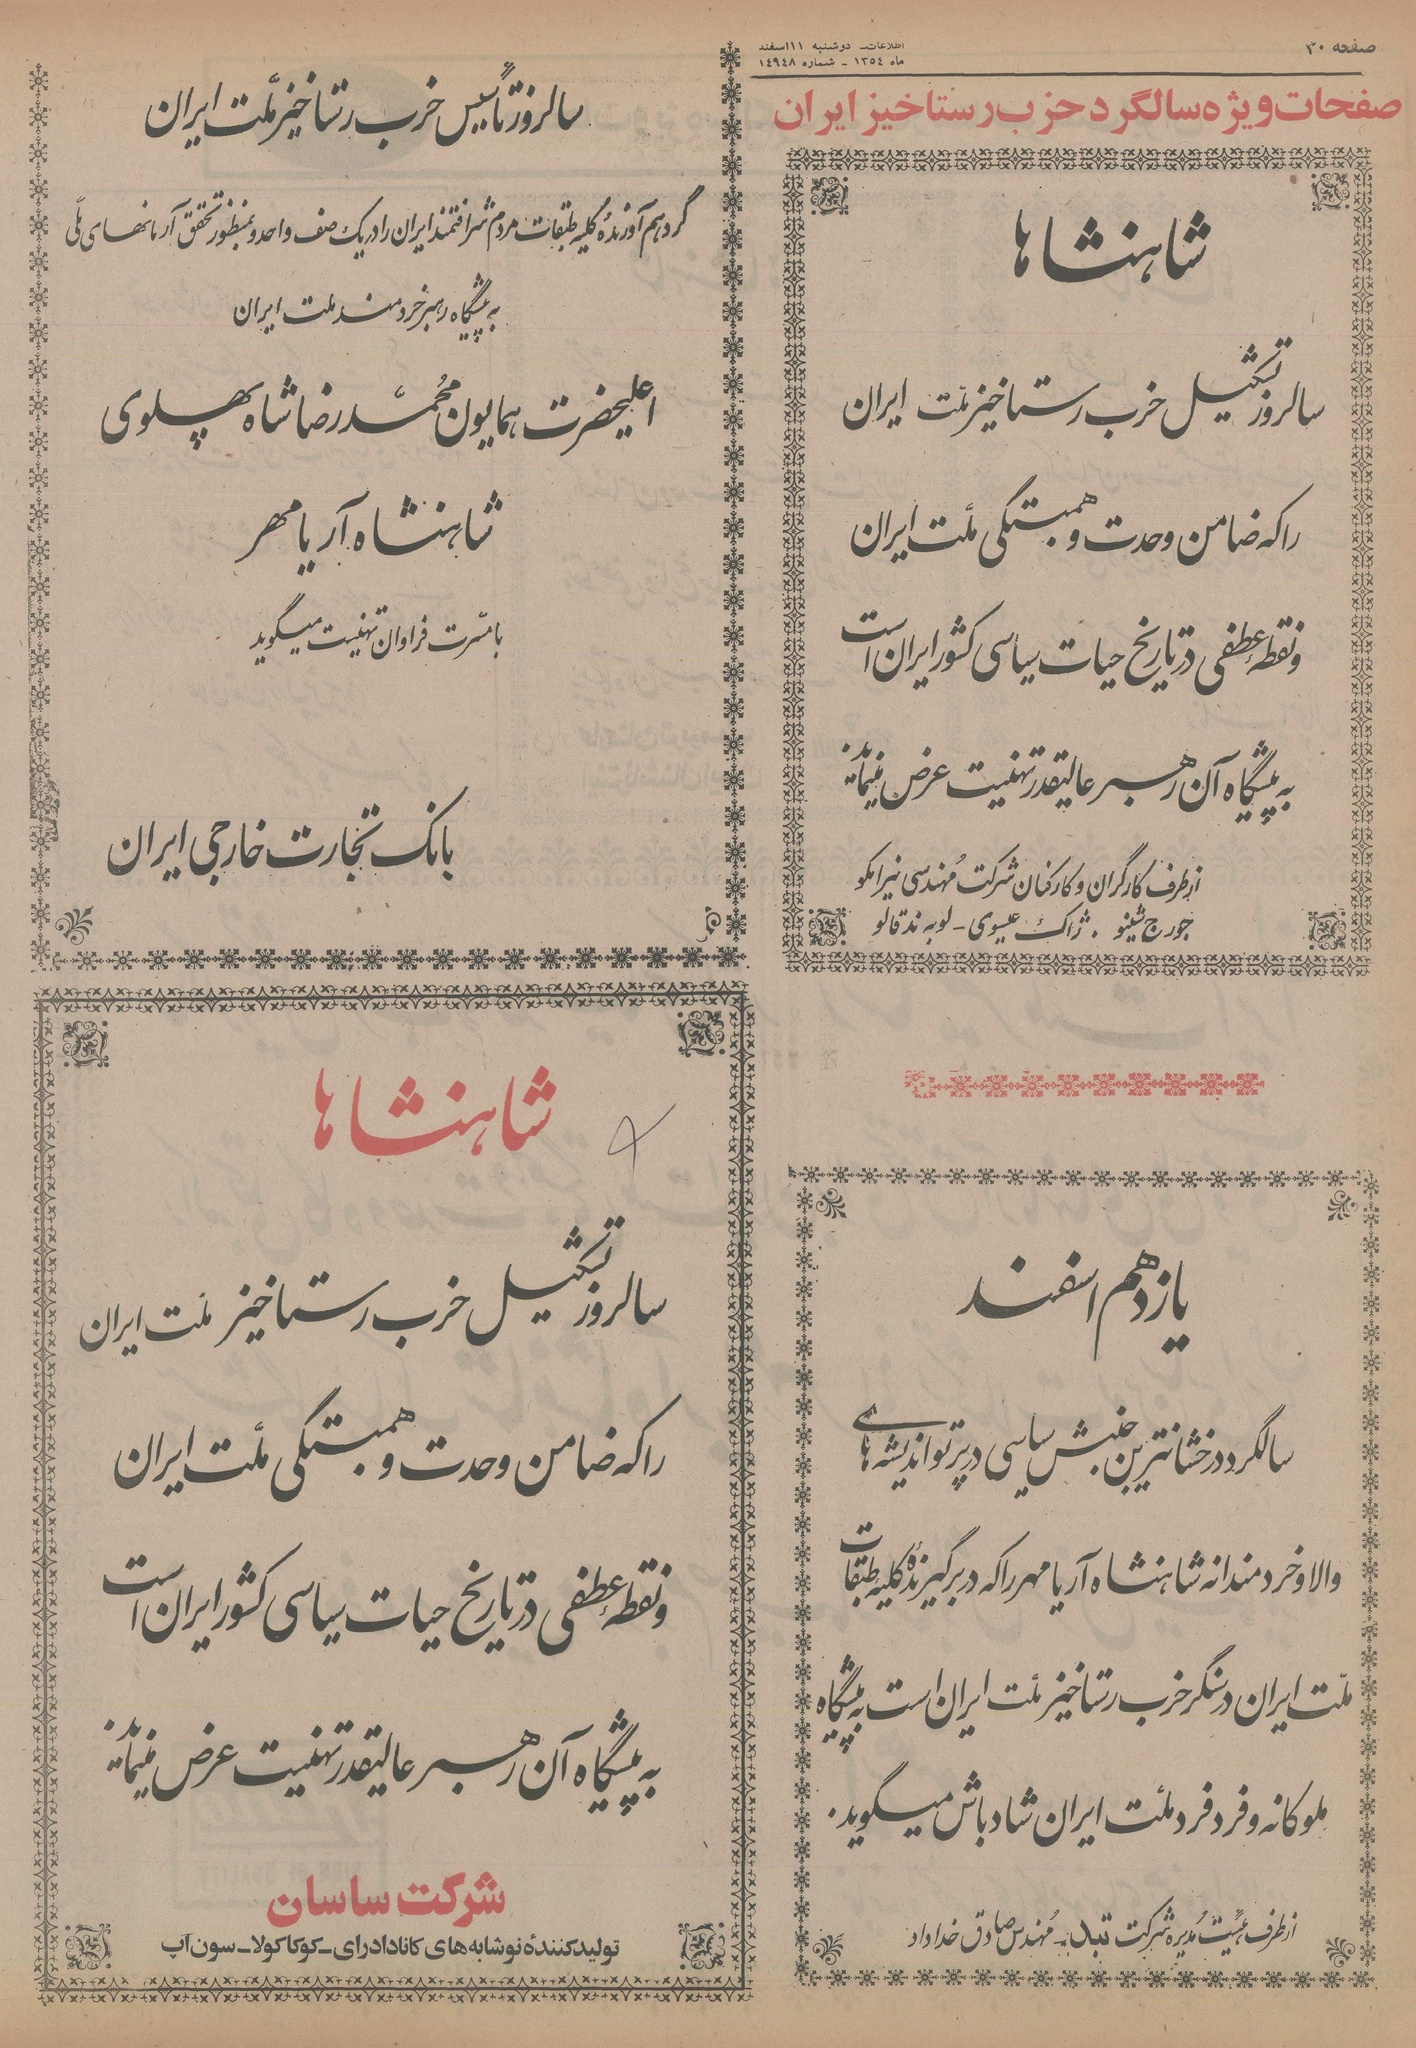 صفحه ۳۰
اطلاعات- دوشنبه ۱۱اسفند
ماه ۱۳۵۴ - شماره ۱۴۹۴۸
صفحات ویژه سالگرد حزب رستاخیز ایران
شاهنشاها
سالروز تشکیل حزب رستاخیز ملّت ایران
را که ضامن وحدت و همبستگی ملّت ایران
و نقطه عطفی در تاریخ حیات سیاسی کشور ایران است
به پیشگاه آن رهبر عالیقدر تهنیت عرض مینماید.
از طرف کارگران و کارکنان شرکت مهندسی نیرامکو
جورج شینو . ژاک عیسوی - لوبه ند قالو
یازدهم اسفند
سالگرد درخشانترین جنبش سیاسی در پرتو اندیشه های
والا و خردمندانه شاهنشاه آریامهر را که در برگیرندهٔ کلیه طبقات
ملّت ایران در سنگر حزب رستاخیز ملّت ایران است به پیشگاه
ملوکانه و فرد فرد ملّت ایران شادباش میگوید.
از طرف هیئت مدیره شرکت تبد - مهندس صادق خداداد
سالروز تأسیس حزب رستاخیز ملّت ایران
گردهم آورندهٔ کلیه طبقات مردم شرافتمند ایران را در یک صف واحد و بمنظور تحقق آرمانهای ملّی
به پیشگاه رهبر خردمند ملت ایران
اعلیحضرت همایون محمّد رضا شاه پهلوی
شاهنشاه آریامهر
با مسّرت فراوان تهنیت میگوید
بانک تجارت خارجی ایران
شاهنشاها
سالروز تشکیل حزب رستاخیز ملّت ایران
را که ضامن وحدت و همبستگی ملّت ایران
و نقطه عطفی در تاریخ حیات سیاسی کشور ایران است
به پیشگاه آن رهبر عالیقدر تهنیت عرض مینماید.
شرکت ساسان
تولیدکنندهٔ نوشابه‌های کانادادرای - کوکاکولا - سون‌آپ